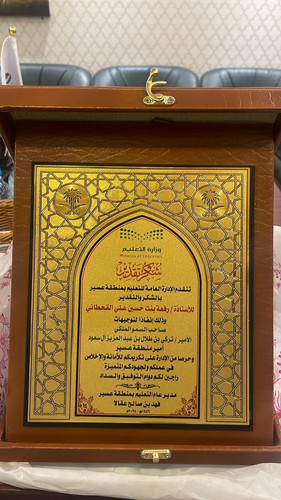 وزارة التعليم
Ministry of Education
شكر وتقدير
تتقدم الإدارة العامة للتعليم بمنطقة عسير
بالشكر والتقدير
للأستاذة / رفعة بنت حسين علي القحطاني
وذلك إنفاذا لتوجيهات
صاحب السمو الملكي
الأمير/ تركي بن طلال بن عبد العزيز آل سعود
أمير منطقة عسير
وحرصا من الإدارة على تكريمكم للأمانة والإخلاص
في عملكم ولجهودكم المتميزة
راجين لكم دوام التوفيق والسداد
مدير عام التعليم بمنطقة عسير
فهد بن صالح عقالا